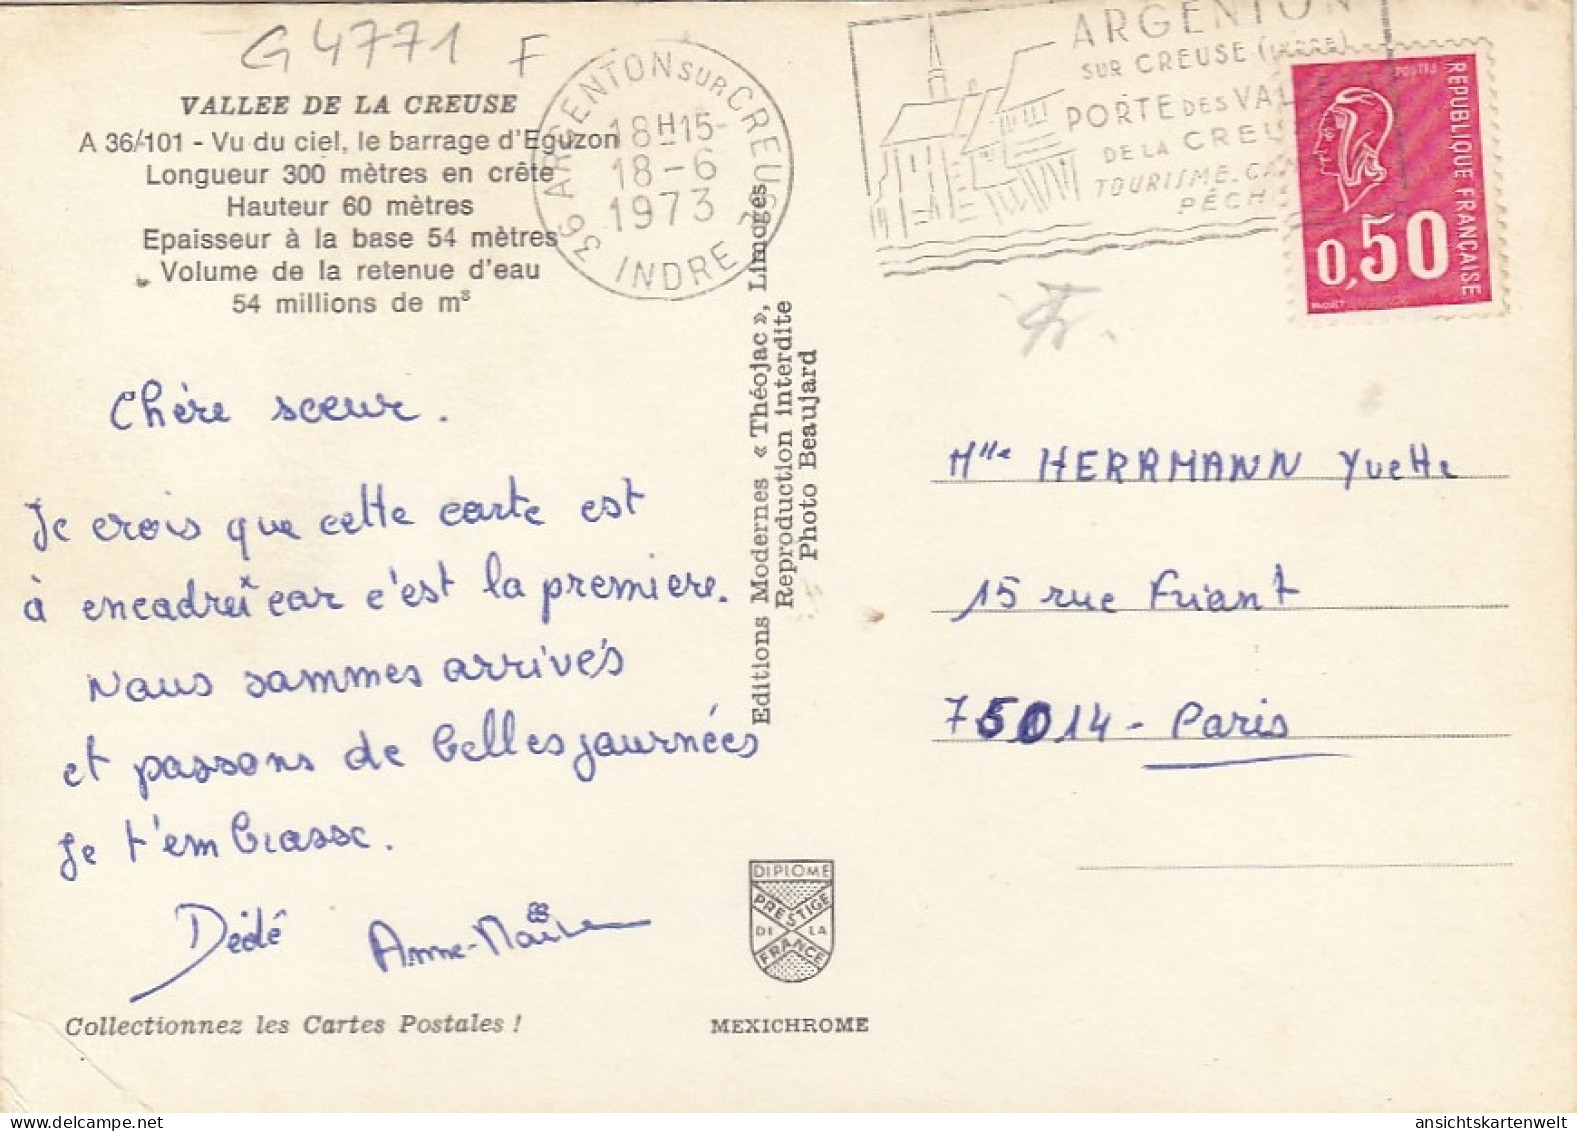 G4771 F
VALLEE DE LA CREUSE
A 36/101 - Vu du ciel, le barrage d'Eguzon
Longueur 300 mètres en crête
Hauteur 60 mètres
Epaisseur à la base 54 mètres
Volume de la retenue d'eau
54 millions de m³
36 ARGENTON SUR CREUSE
18H15-
18-6
1973
INDRE
ARGENTON
SUR CREUSE
PORTE DES
DE LA
TOURISME.
REPUBLIQUE FRANÇAISE
POSTES
0,50
Chère sœur.
Je crois que cette carte est
à encadrer car c'est la premiere.
Nous sommes arrivés
et passons de belles journées
Je t'embrasse.
Dédé Anne-Marie
Editions Modernes « Théojac », Limoges
Reproduction interdite
Photo Beaujard
Mlle HERRMANN Yvette
15 rue Friant
75014 - Paris
DIPLOME
PRESTIGE
DE LA
FRANCE
Collectionnez les Cartes Postales !
MEXICHROME
ansichtskartenwelt